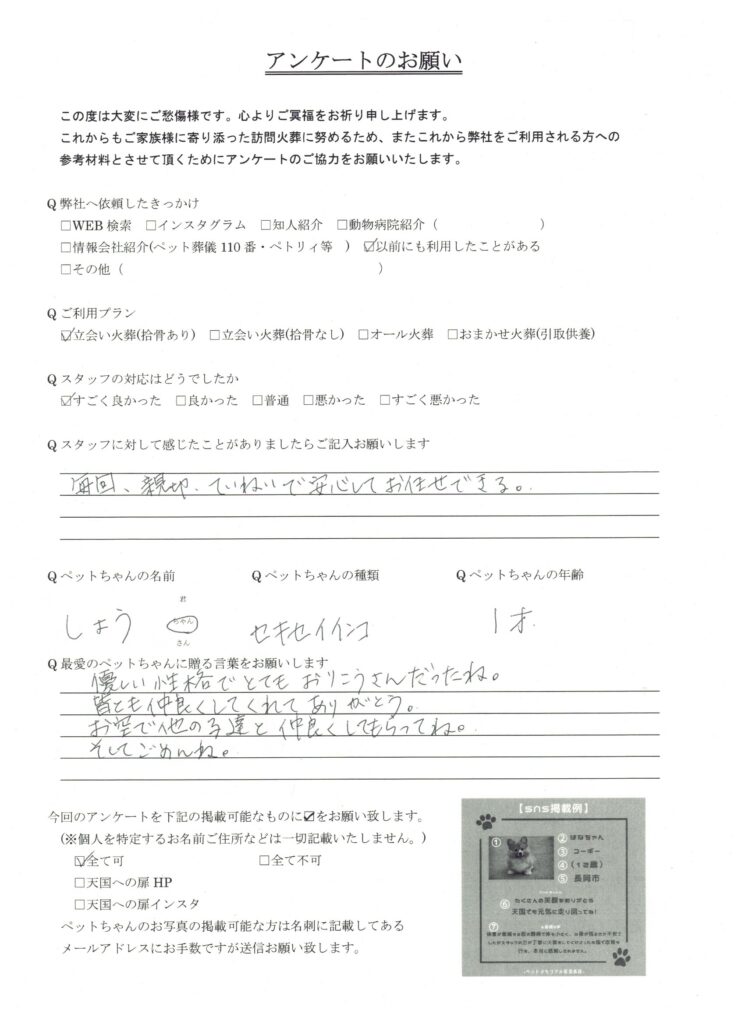 アンケートのお願い
この度は大変にご愁傷様です。心よりご冥福をお祈り申し上げます。
これからもご家族様に寄り添った訪問火葬に努めるため、またこれから弊社をご利用される方への
参考材料とさせて頂くためにアンケートのご協力をお願いいたします。
Q 弊社へ依頼したきっかけ
□WEB 検索 □インスタグラム □知人紹介 □動物病院紹介（ ）
□情報会社紹介(ペット葬儀 110 番・ペトリィ等 ) ☑以前にも利用したことがある
□その他（ ）
Q ご利用プラン
☑立会い火葬(拾骨あり) □立会い火葬(拾骨なし) □オール火葬 □おまかせ火葬(引取供養)
Q スタッフの対応はどうでしたか
☑すごく良かった □良かった □普通 □悪かった □すごく悪かった
Q スタッフに対して感じたことがありましたらご記入お願いします
毎回、親切、ていねいで安心してお任せできる。
Q ペットちゃんの名前 Q ペットちゃんの種類 Q ペットちゃんの年齢
君
しょう ちゃん セキセイインコ 1才
さん
Q 最愛のペットちゃんに贈る言葉をお願いします
優しい性格でとてもおりこうさんだったね。
皆とも仲良くしてくれてありがとう。
お空で他の子達と仲良くしてもらってね。
そしてごめんね。
今回のアンケートを下記の掲載可能なものに☑をお願い致します。
(※個人を特定するお名前ご住所などは一切記載いたしません。)
☑全て可 □全て不可
□天国への扉 HP
□天国への扉インスタ
ペットちゃんのお写真の掲載可能な方は名刺に記載してある
メールアドレスにお手数ですが送信お願い致します。
【sns掲載例】
① ② はなちゃん
③ コーギー
④ (12歳)
⑤ 長岡市
⑥ たくさんの笑顔をありがとう
天国でも元気に走り回ってね!
⑦